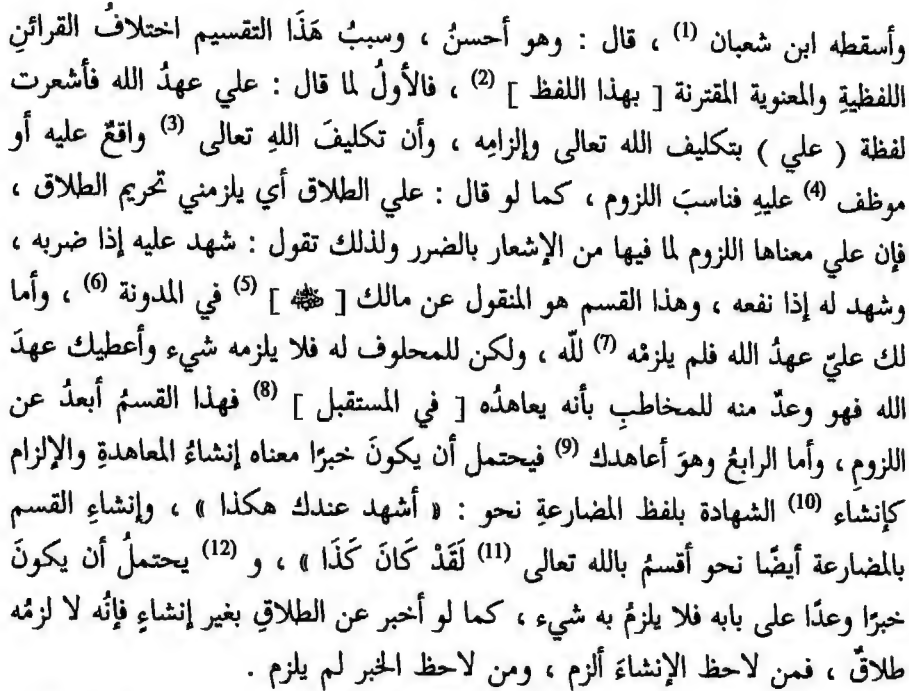 وأسقطه ابن شعبان (1) ، قال : وهو أحسنُ ، وسببُ هَذَا التقسيم اختلافُ القرائنِ
اللفظيةِ والمعنوية المقترنة [ بهذا اللفظ ] (2) ، فالأولُ لما قال : علي عهدُ الله فأشعرت
لفظة ( علي ) بتكليف الله تعالى وإلزامِه ، وأن تكليفَ اللهِ تعالى (3) واقعٌ عليه أو
موظف (4) عليهِ فناسبَ اللزوم ، كما لو قال : علي الطلاق أي يلزمني تحريم الطلاق ،
فإن علي معناها اللزوم لما فيها من الإشعار بالضرر ولذلك تقول : شهد عليه إذا ضربه ،
وشهد له إذا نفعه ، وهذا القسم هو المنقول عن مالك [ ﷺ ] (5) في المدونة (6) ، وأما
لك عليّ عهدُ الله فلم يلزمْه (7) للّه ، ولكن للمحلوف له فلا يلزمه شيء وأعطيك عهدَ
الله فهو وعدٌ منه للمخاطبِ بأنه يعاهدُه [ في المستقبل ] (8) فهذا القسمُ أبعدُ عن
اللزومِ ، وأما الرابعُ وهوَ أعاهدك (9) فيحتمل أن يكونَ خبرًا معناه إنشاءُ المعاهدةِ والإلزام
كإنشاء (10) الشهادة بلفظ المضارعةِ نحو : « أشهد عندك هكذا » ، وإنشاءِ القسم
بالمضارعة أيضًا نحو أقسمُ بالله تعالى (11) لَقَدْ كَانَ كَذَا » ، و (12) يحتملُ أن يكونَ
خبرًا وعدًا على بابه فلا يلزمُ به شيء ، كما لو أخبر عن الطلاقِ بغير إنشاءٍ فإنُه لا لزمُه
طلاقٌ ، فمن لاحظ الإنشاءَ ألزم ، ومن لاحظ الخبر لم يلزم .